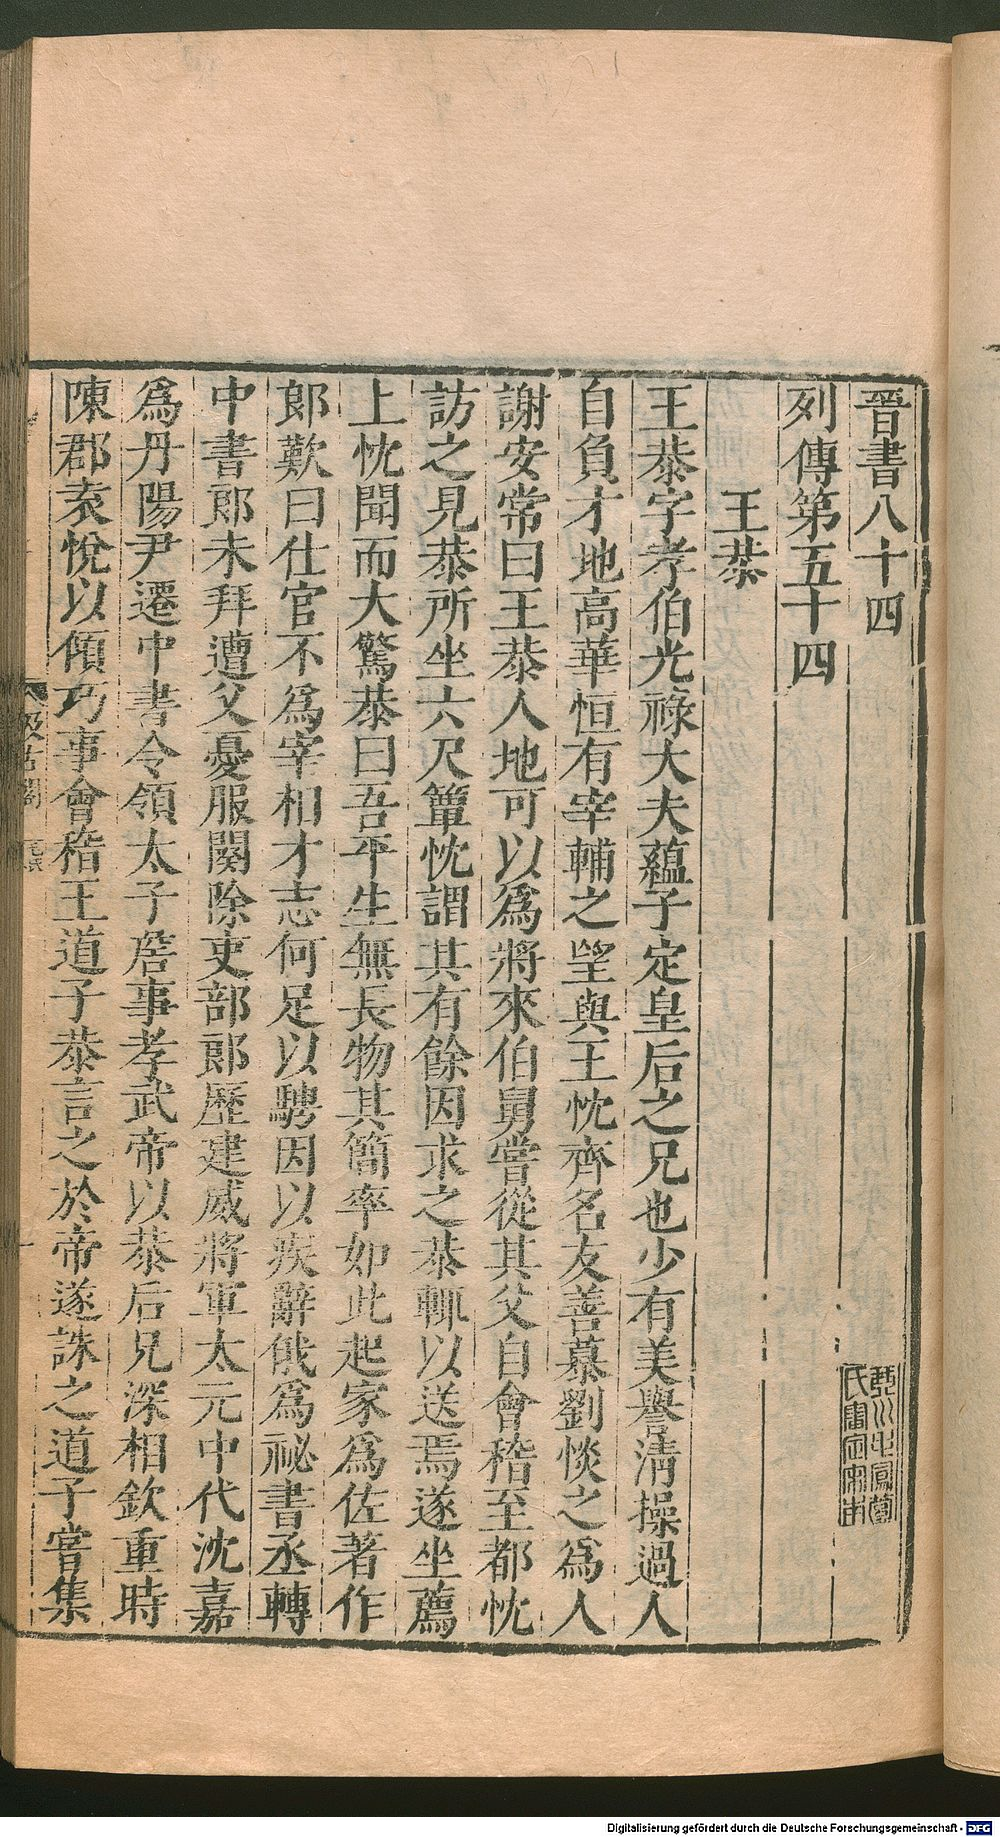 晉書八十四
列傳第五十四
王恭
王恭字孝伯光祿大夫蘊子定皇后之兄也少有美譽淸操過人
自負才地高華恒有宰輔之望與王忱齊名友善慕劉惔之爲人
謝安常曰王恭人地可以爲將來伯舅嘗從其父自會稽至都忱
訪之見恭所坐六尺簟忱謂其有餘因求之恭輒以送焉遂坐薦
上忱聞而大驚恭曰吾平生無長物其簡率如此起家爲佐著作
郞歎曰仕官不爲宰相才志何足以騁因以疾辭俄爲祕書丞轉
中書郞未拜遭父憂服闋除吏部郞歷建威將軍太元中代沈嘉
爲丹陽尹遷中書令領太子詹事孝武帝以恭后兄深相欽重時
陳郡袁悅以傾巧事會稽王道子恭言之於帝遂誅之道子嘗集
汲古閣
毛氏
Digitalisierung gefördert durch die Deutsche Forschungsgemeinschaft - DFG